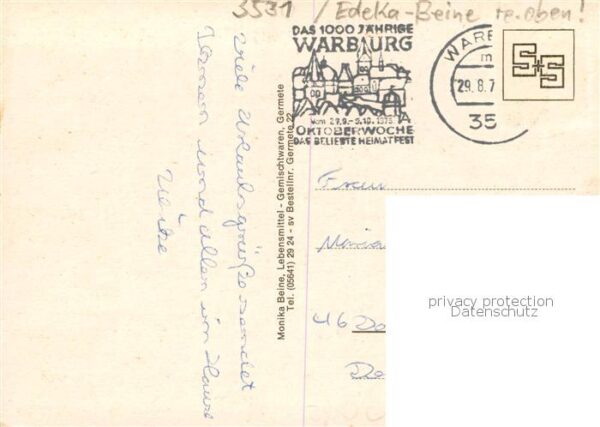 3531 / Edeka-Beine re. oben!
DAS 1000 JÄHRIGE
WARBURG
vom 27.9.-5.10.1975
OKTOBERWOCHE
DAS BELIEBTE HEIMATFEST
WARB
m
29.8.7
35
S+S
Viele Urlaubsgrüße sendet
Ihnen und allen im Hause
Monika Beine, Lebensmittel - Gemischtwaren, Germete
Tel. (05641) 29 24 - sv Bestellnr. Germete 22
Frau
Maria
46 Do
privacy protection
Datenschutz